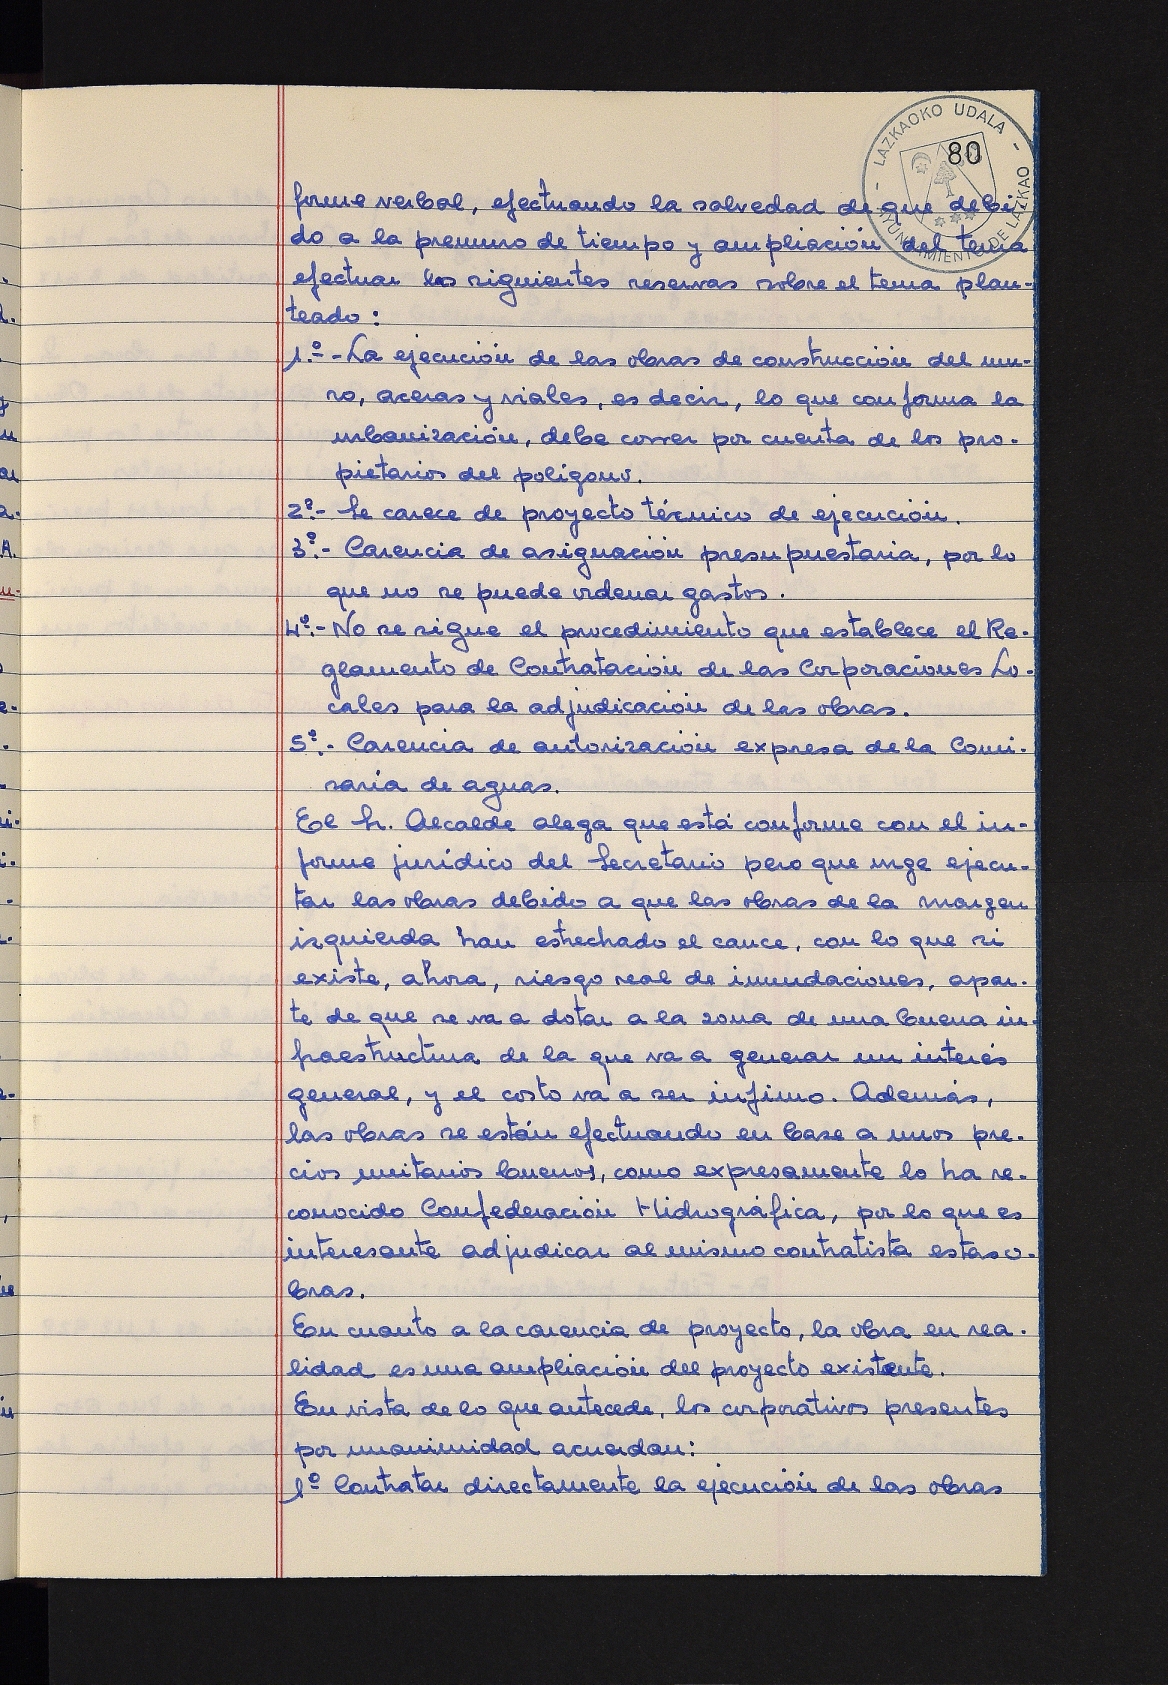 LAZKAOKO UDALA - AYUNTAMIENTO DE LAZKAO -
80
forme verbal, efectuando la salvedad de que debi-
do a la premura de tiempo y ampliación del tema
efectuar las siguientes reservas sobre el tema plan-
teado:
1º.- La ejecución de las obras de construcción del mu-
ro, aceras y viales, es decir, lo que conforma la
urbanización, debe correr por cuenta de los pro-
pietarios del polígono.
2º.- Se carece de proyecto técnico de ejecución.
3º.- Carencia de asignación presupuestaria, por lo
que no se puede ordenar gastos.
4º.- No se sigue el procedimiento que establece el Re-
glamento de Contratación de las Corporaciones Lo-
cales para la adjudicación de las obras.
5º.- Carencia de autorización expresa de la Comi-
saría de aguas.
El Sr. Alcalde alega que está conforme con el in-
forme jurídico del Secretario pero que urge ejecu-
tar las obras debido a que las obras de la margen
izquierda han estrechado el cauce, con lo que si
existe, ahora, riesgo real de inundaciones, apar-
te de que se va a dotar a la zona de una buena in-
fraestructura de la que va a generar un interés
general, y el costo va a ser ínfimo. Además,
las obras se están efectuando en base a unos pre-
cios unitarios buenos, como expresamente lo ha re-
conocido Confederación Hidrográfica, por lo que es
interesante adjudicar al mismo contratista estas o-
bras.
En cuanto a la carencia de proyecto, la obra en rea-
lidad es una ampliación del proyecto existente.
En vista de lo que antecede, los corporativos presentes
por unanimidad acuerdan:
1º Contratar directamente la ejecución de las obras